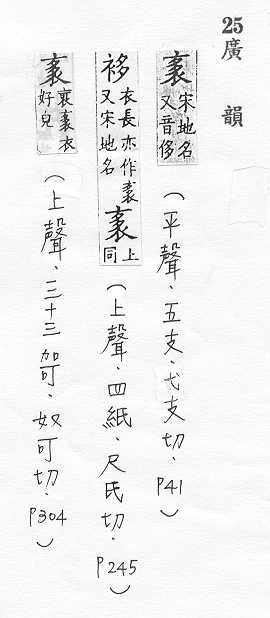 25 廣韻
袲 宋地名又音侈 (平聲、五支、弋支切、P41)
袳 衣長亦作袲又宋地名 袲 上同 (上聲、四紙、尺氏切、P245)
袲 袲衣好皃 (上聲、三十三哿、奴可切、P304)